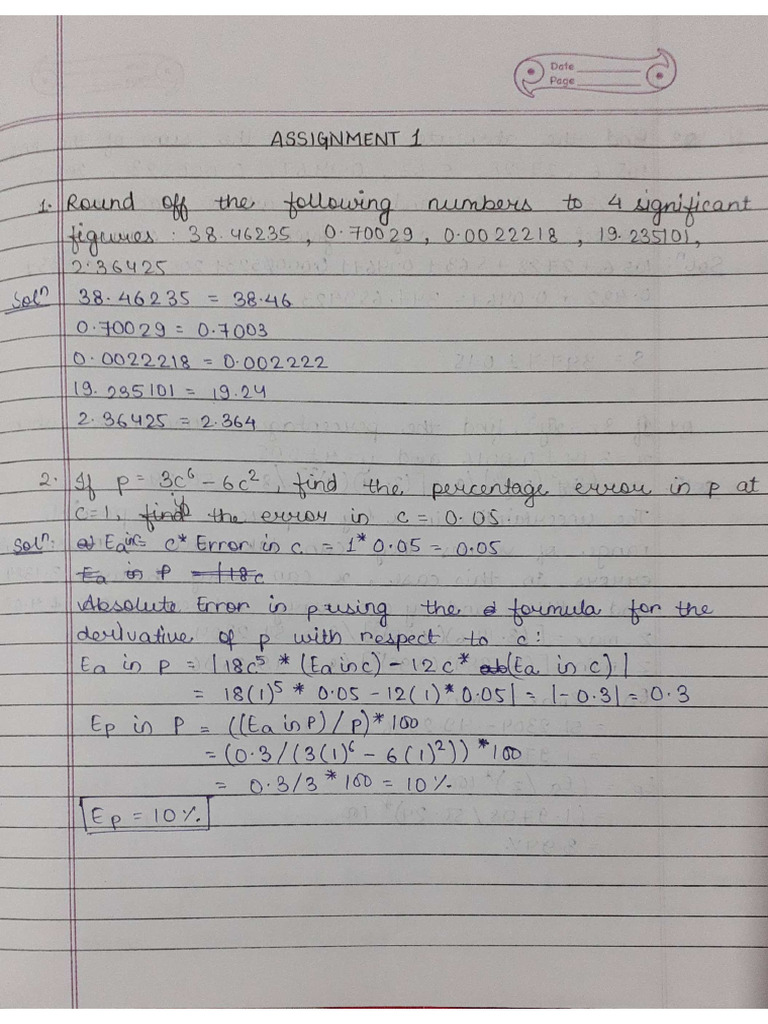 Date
Page
ASSIGNMENT 1
1. Round off the following numbers to 4 significant
figures : 38.46235 , 0.70029 , 0.0022218 , 19.235101,
2.36425
Solⁿ 38.46235 = 38.46
0.70029 = 0.7003
0.0022218 = 0.002222
19.235101 = 19.24
2.36425 = 2.364
2. If p = 3c⁶ – 6c², find the percentage error in p at
c=1, if the error in c = 0.05
Solⁿ: Ea in = c* Error in c = 1* 0.05 = 0.05
Ea in P = |18c
Absolute Error in p using the formula for the
derivative of p with respect to c :
Ea in p = |18c⁵ * (Ea in c) – 12c* (Ea in c) |
= 18(1)⁵ * 0.05 – 12(1)* 0.05| = |-0.3| = 0.3
Ep in P = ((Ea in P) / p)* 100
= (0.3/(3(1)⁶ – 6(1)²)) * 100
= 0.3/3 * 100 = 10%
Ep = 10%